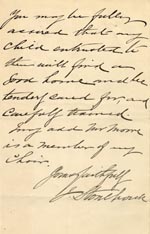 You may be fully
assured that any
child entrusted to
them will find a
Good home and be
tenderly cared for, and
carefully trained.
I may add Mr Moore
is a member of my
Choir.
Yours faithfully
J Stonehouse